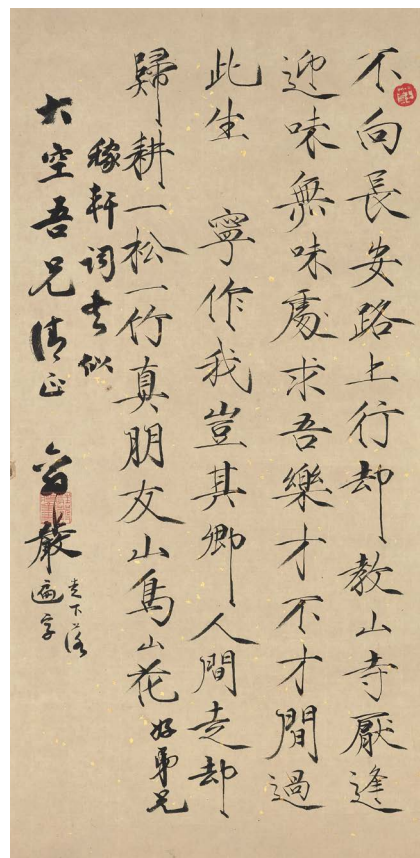 不向長安路上行却教山寺厭逢
迎味無味處求吾樂才不才間過
此生 寧作我豈其卿人間走却
歸耕一松一竹真朋友山鳥山花好弟兄
稼軒詞書似
大空吾兄清正 嚴
走下落
遍字